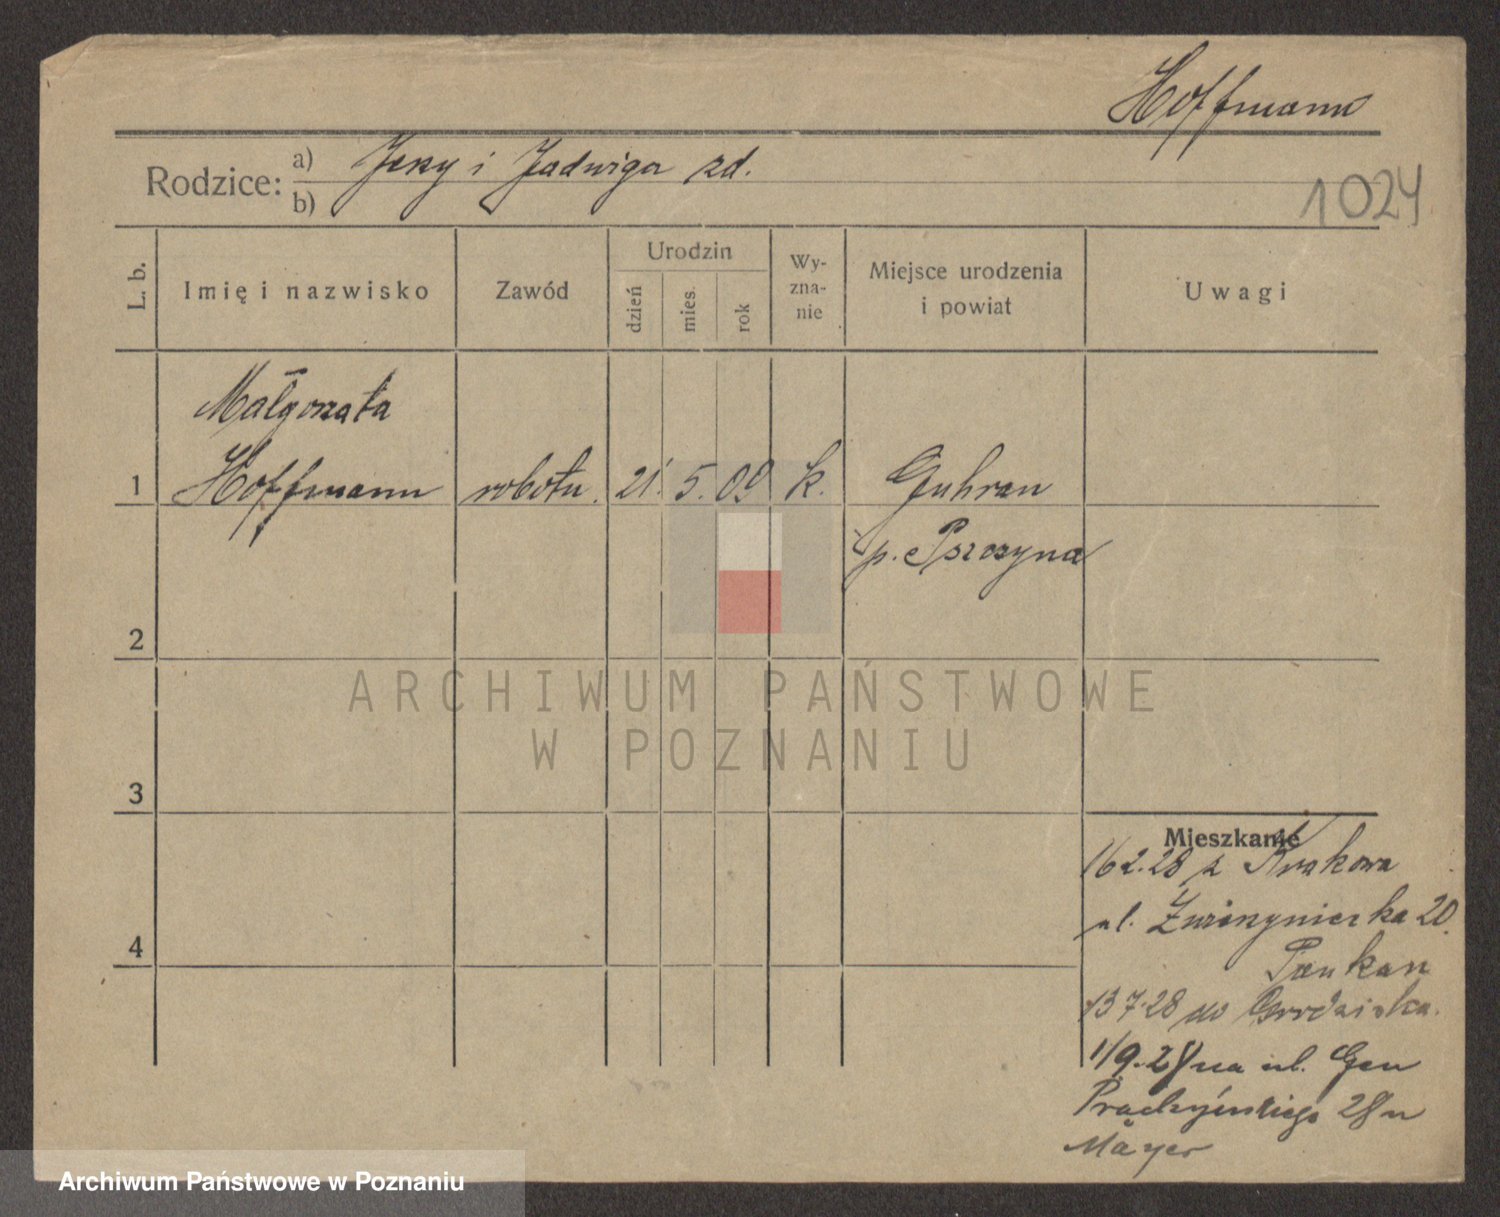 Hoffmann
Rodzice: a) Jerzy i Jadwiga zd.
b)
1024
L. b.
Imię i nazwisko
Zawód
Urodzin
dzień
mies.
rok
Wy-
zna-
nie
Miejsce urodzenia
i powiat
Uwagi
Małgorzata
1 Hoffmann robotn. 21. 5. 09 k. Guhran
p. Pszczyna
2
3
4
Mieszkanie
16 2.28 z Krakowa
ul. Zwierzyniecka 20.
13 7.28 do Grodziska.
1/9.28 na ul. Gen
Prądzyńskiego 28 u
Mayer
ARCHIWUM PAŃSTWOWE
W POZNANIU
Archiwum Państwowe w Poznaniu